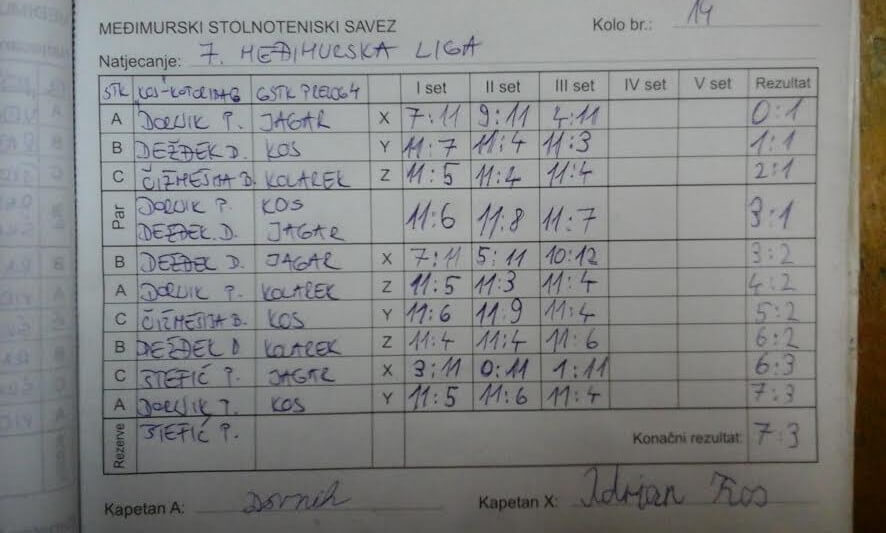 MEĐIMURSKI STOLNOTENISKI SAVEZ Kolo br.: 14
Natjecanje: 7. MEĐIMURSKA LIGA
STK KOS-KOTORIBA 6 GSTK PRELOG 4 I set II set III set IV set V set Rezultat
A DOLVIK P. JAGAR X 7:11 9:11 4:11 0:1
B DEŽĐEK D. KOS Y 11:7 11:4 11:3 1:1
C ČIŽMEŠIJA D. KOLAREK Z 11:5 11:4 11:4 2:1
Par DOLVIK P. KOS 11:6 11:8 11:7 3:1
DEŽĐEK D. JAGAR
B DEŽĐEK D. JAGAR X 7:11 5:11 10:12 3:2
A DOLVIK P. KOLAREK Z 11:5 11:3 11:4 4:2
C ČIŽMEŠIJA D. KOS Y 11:6 11:9 11:4 5:2
B DEŽĐEK D KOLAREK Z 11:4 11:4 11:6 6:2
C ŠTEFIĆ P. JAGAR X 3:11 0:11 1:11 6:3
A DOLVIK P. KOS Y 11:5 11:6 11:4 7:3
Rezerve ŠTEFIĆ P. Konačni rezultat: 7:3
Kapetan A: Kapetan X: Adrian Kos